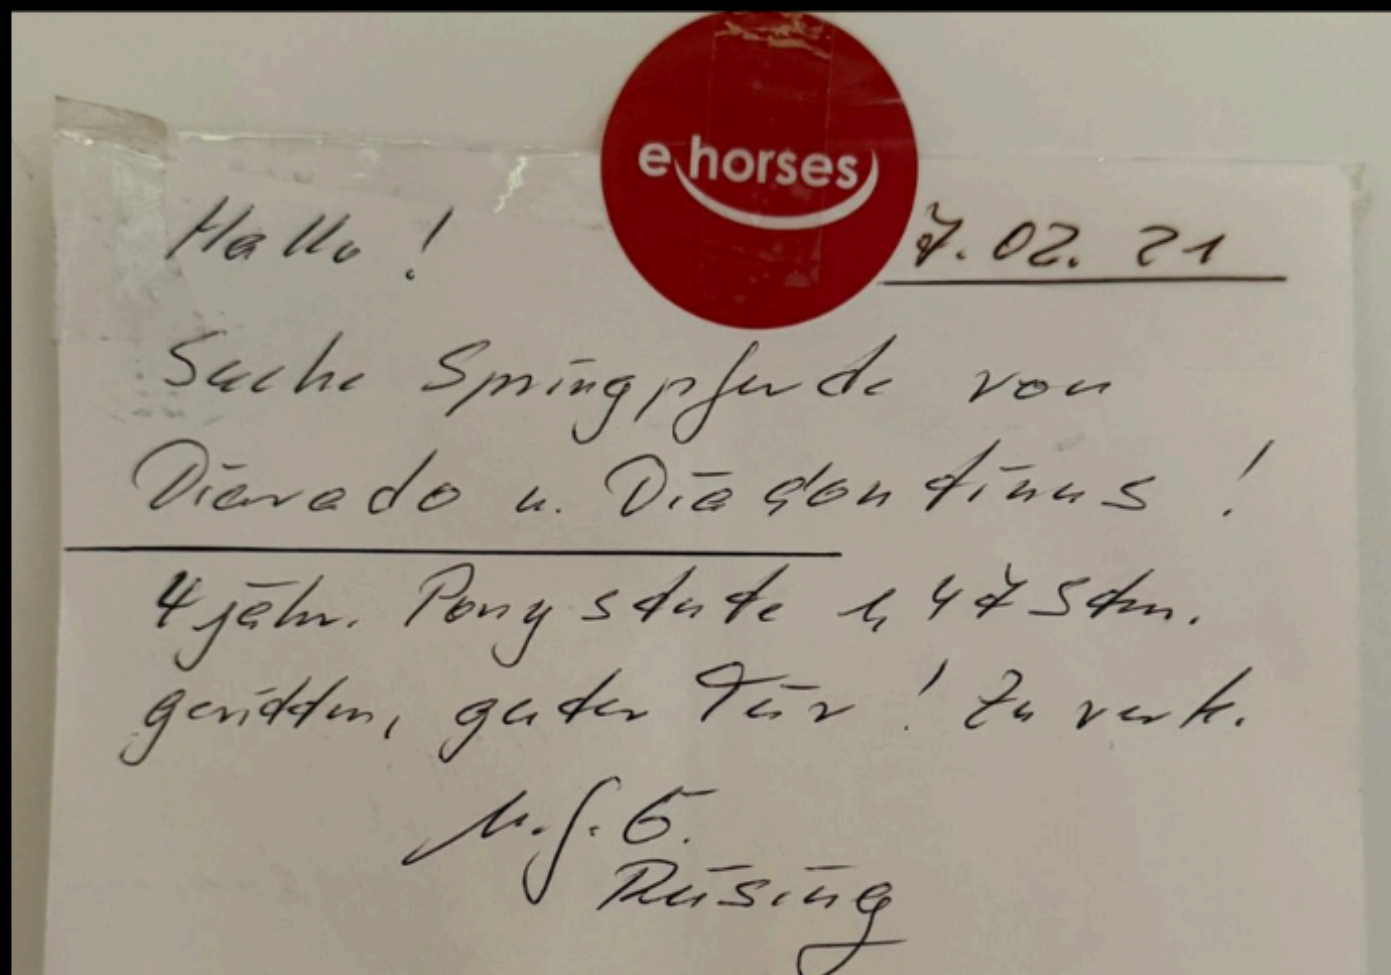 e horses
Hallo! 7.02.21
Suche Springpferde von
Diarado u. Diacontinus!
4 jähr. Pony stute 147 Stm.
geritten, guter Tür! Zu verk.
M.f.G.
Rüsing